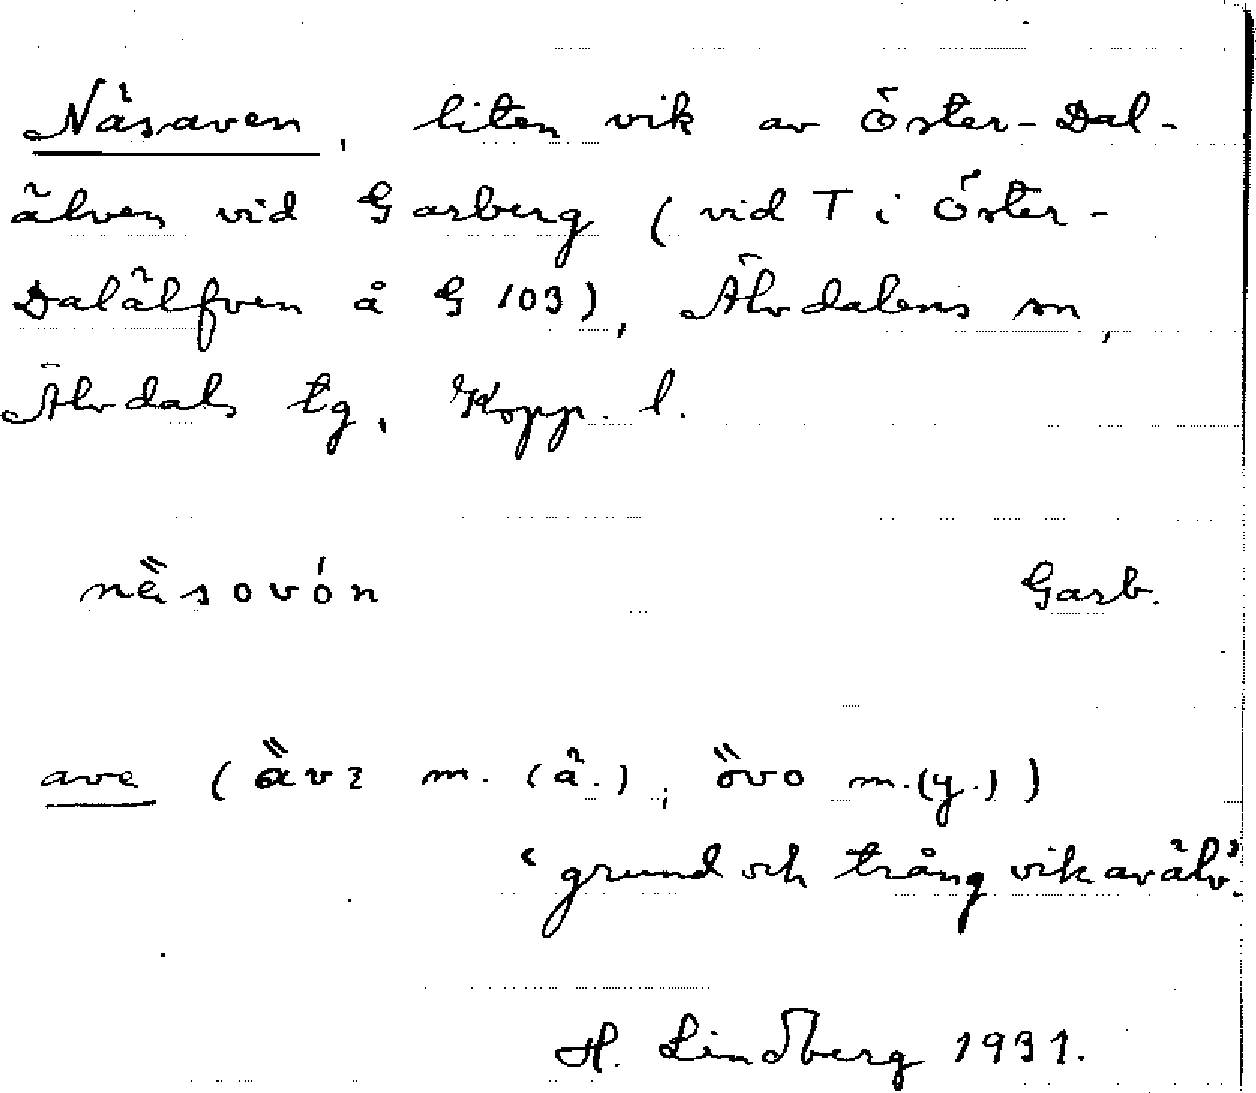 Näsaven, liten vik av Öster-Dal-
älven vid Garberg (vid T i Öster-
Dalälfven å G 103), Älvdalens sn,
Älvdals tg, Kopp. l.
nä̀sovón Garb.
ave (ä̀vɜ m. (ä.); ö̀vo m.(y.))
‘grund och trång vik av älv’.
H. Lindberg 1931.